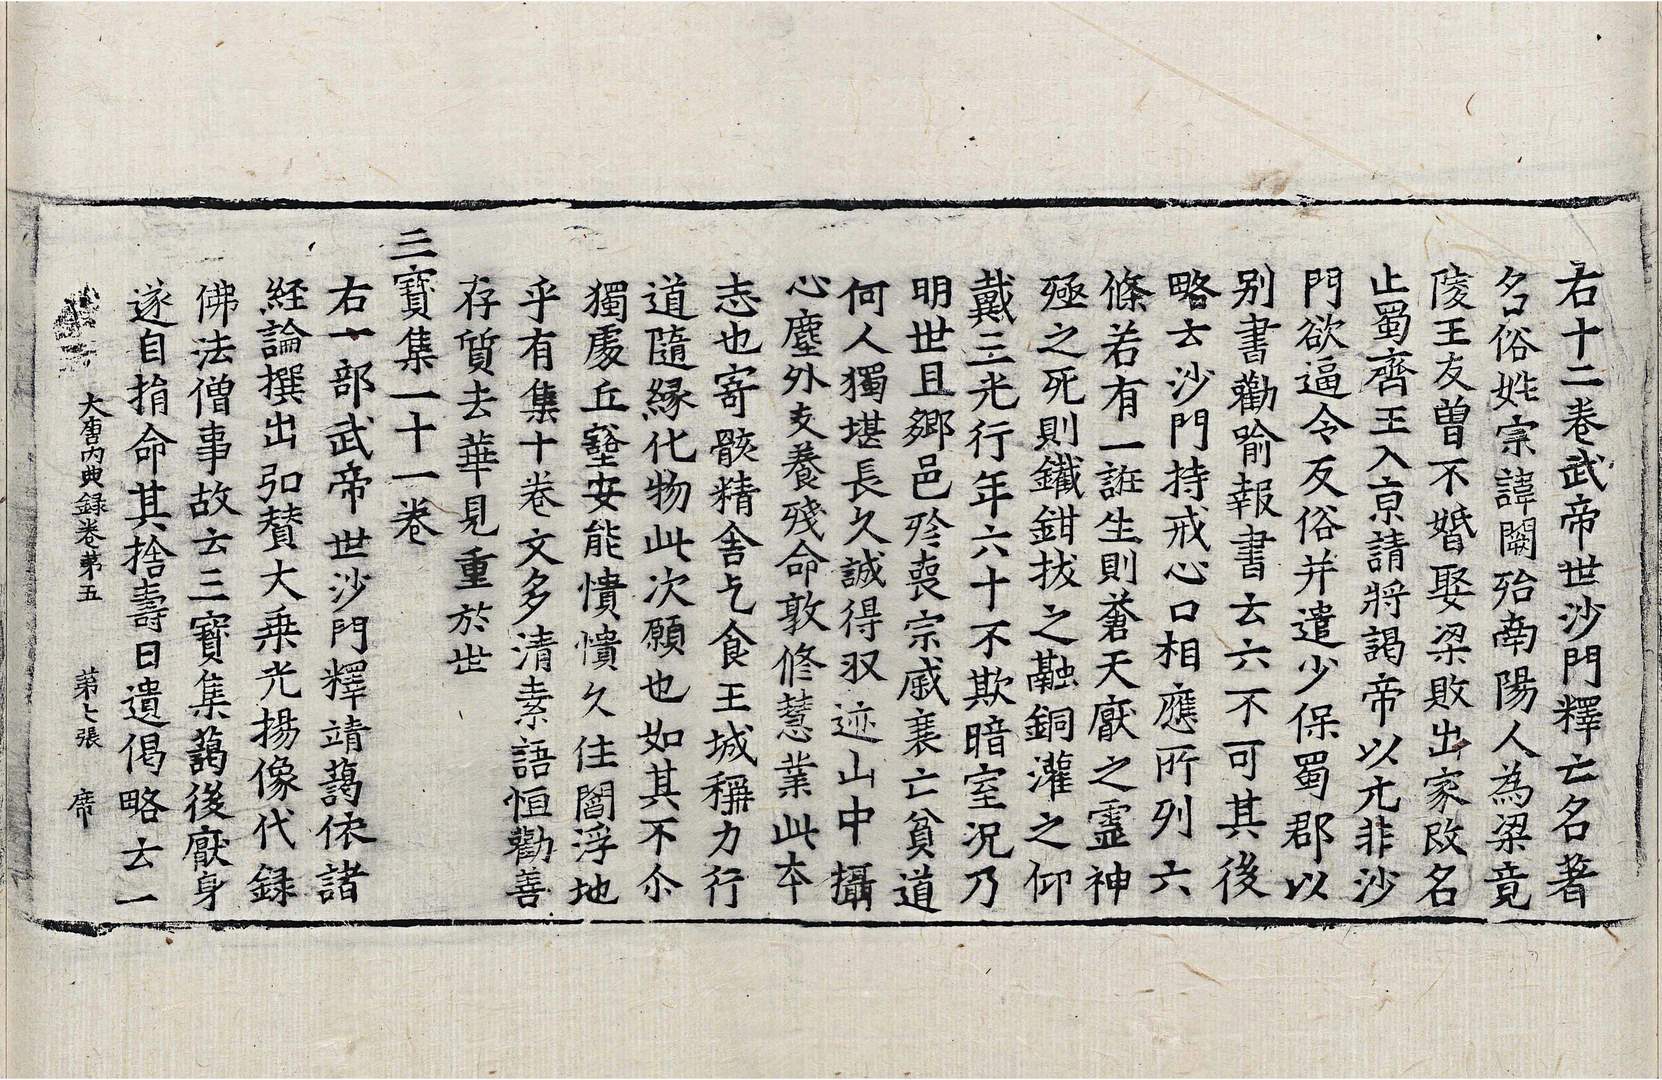 右十二卷武帝世沙門釋亡名著
名俗姓宗諱闕殆南陽人為梁竟
陵王友曽不婚娶梁敗出家改名
止蜀齊王入京請將謁帝以元非沙
門欲逼令反俗并遣少保蜀郡以
别書勸喻報書云六不可其後
略云沙門持戒心口相應所列六
條若有一誑生則蒼天厭之靈神
殛之死則鐵鉗拔之融銅灌之仰
戴三光行年六十不欺暗室況乃
明世且鄉邑殄喪宗戚衰亡貧道
何人獨堪長久誠得収迹山中攝
心塵外支養殘命敦修慧業此本
志也寄骸精舎乞食王城稱力行
道隨縁化物此次願也如其不尒
獨處丘壑安能憒憒久住閻浮地
乎有集十卷文多清素語恒勸善
存質去華見重於世
三寶集一十一卷
右一部武帝世沙門釋靖藹依諸
経論撰出弘賛大乗光揚像代録
佛法僧事故云三寶集藹後厭身
遂自捐命其捨壽日遺偈略云一
大唐内典録卷第五 第七張 席